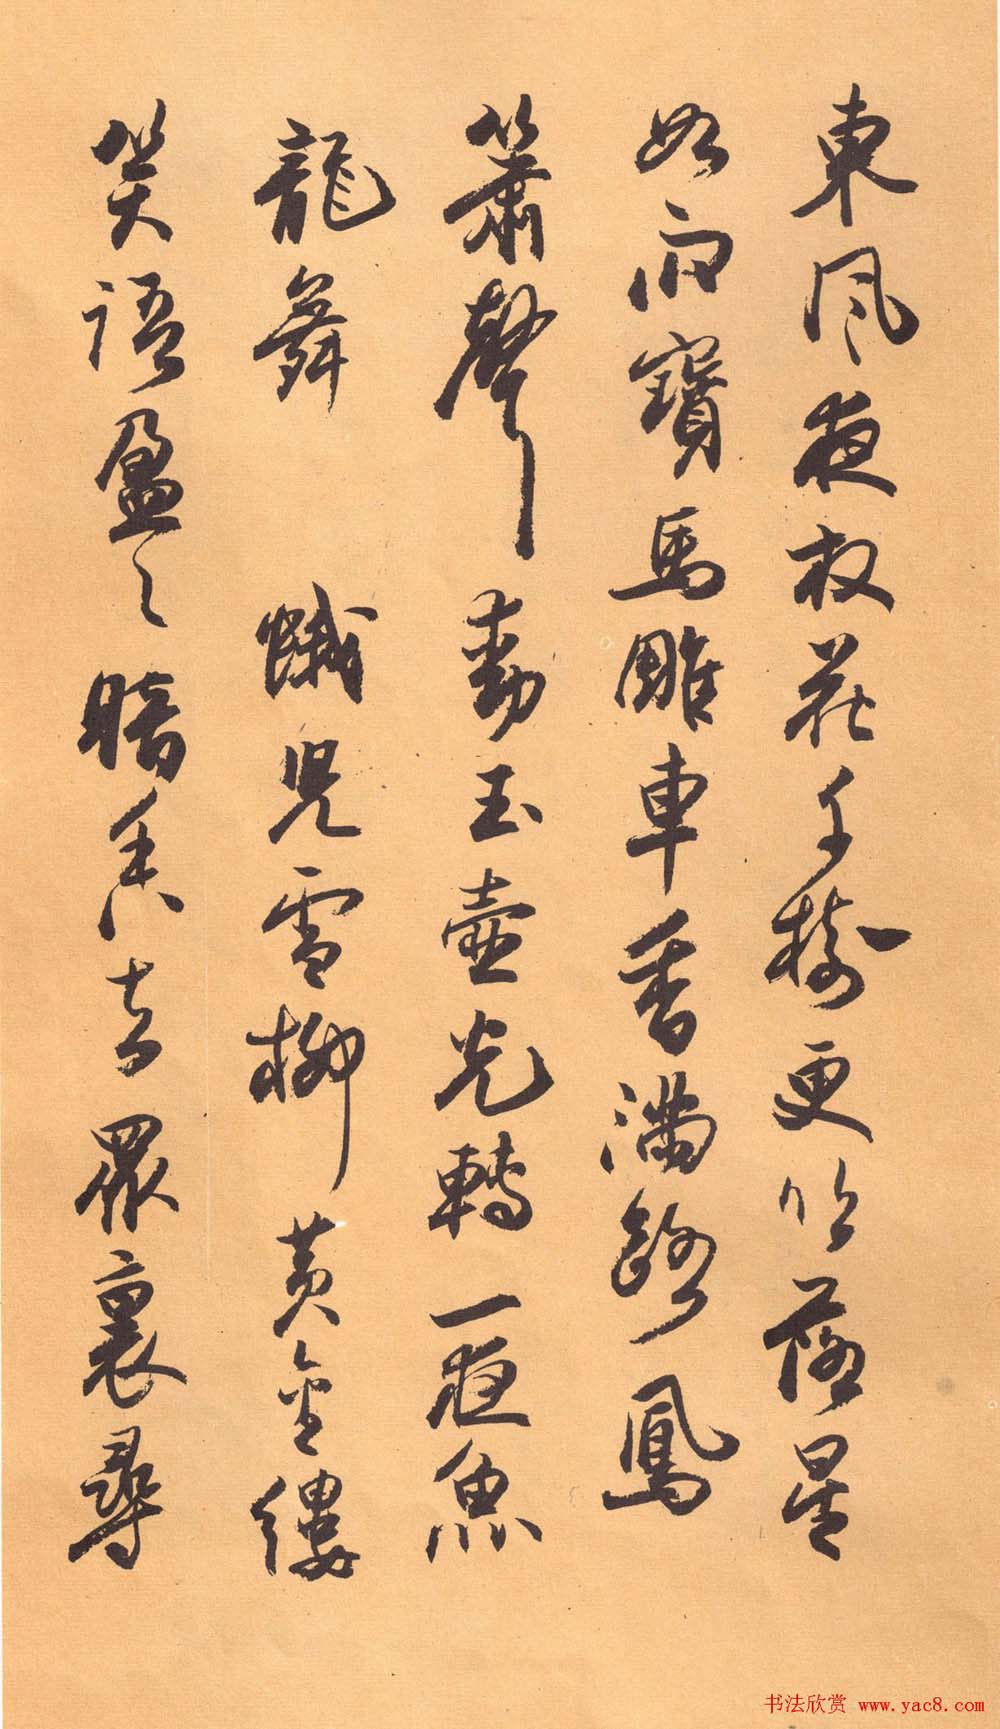 東風夜放花千樹更吹落星
如雨寶馬雕車香滿路鳳
簫聲動玉壺光轉一夜魚
龍舞 蛾兒雪柳黄金縷
笑語盈々暗香去眾裏尋
书法欣赏 www.yac8.com